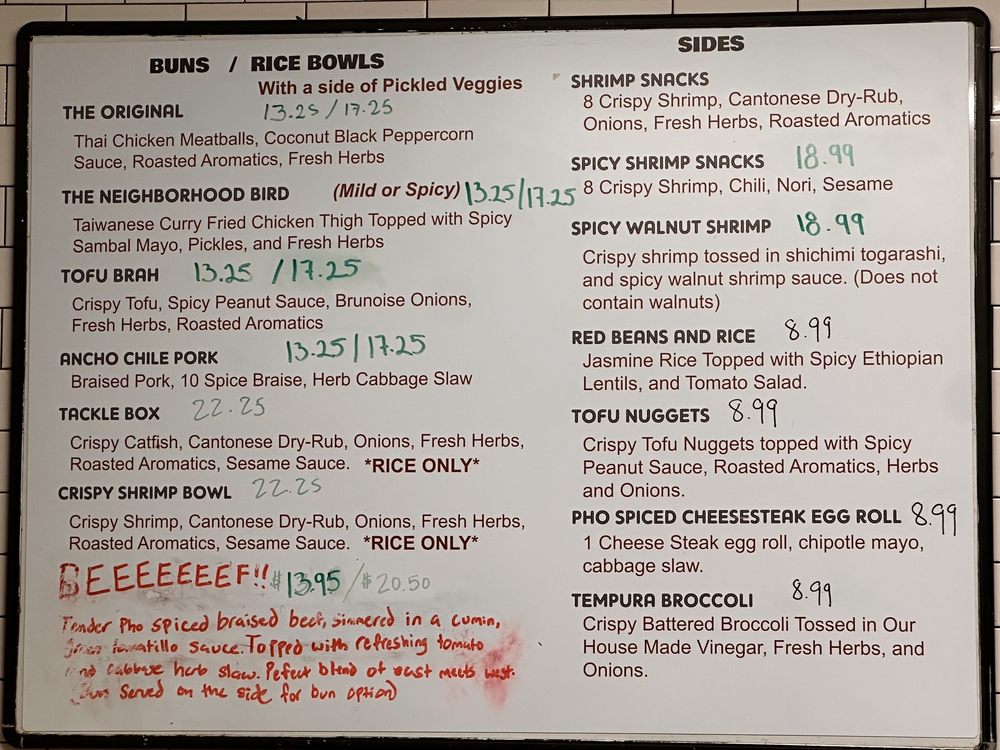 BUNS / RICE BOWLS
With a side of Pickled Veggies
THE ORIGINAL 13.25 / 17.25
Thai Chicken Meatballs, Coconut Black Peppercorn
Sauce, Roasted Aromatics, Fresh Herbs
THE NEIGHBORHOOD BIRD (Mild or Spicy) 13.25/17.25
Taiwanese Curry Fried Chicken Thigh Topped with Spicy
Sambal Mayo, Pickles, and Fresh Herbs
TOFU BRAH 13.25 / 17.25
Crispy Tofu, Spicy Peanut Sauce, Brunoise Onions,
Fresh Herbs, Roasted Aromatics
ANCHO CHILE PORK 13.25 | 17.25
Braised Pork, 10 Spice Braise, Herb Cabbage Slaw
TACKLE BOX 22.25
Crispy Catfish, Cantonese Dry-Rub, Onions, Fresh Herbs,
Roasted Aromatics, Sesame Sauce. *RICE ONLY*
CRISPY SHRIMP BOWL 22.25
Crispy Shrimp, Cantonese Dry-Rub, Onions, Fresh Herbs,
Roasted Aromatics, Sesame Sauce. *RICE ONLY*
BEEEEEEEF!! $13.95 / $20.50
Tender Pho spiced braised beef, simmered in a cumin,
tomatillo sauce. Topped with refreshing tomato
and cabbage herb slaw. Pefect blend of east meets west.
(Bun Served on the side for bun option)
SIDES
SHRIMP SNACKS
8 Crispy Shrimp, Cantonese Dry-Rub,
Onions, Fresh Herbs, Roasted Aromatics
SPICY SHRIMP SNACKS 18.99
8 Crispy Shrimp, Chili, Nori, Sesame
SPICY WALNUT SHRIMP 18.99
Crispy shrimp tossed in shichimi togarashi,
and spicy walnut shrimp sauce. (Does not
contain walnuts)
RED BEANS AND RICE 8.99
Jasmine Rice Topped with Spicy Ethiopian
Lentils, and Tomato Salad.
TOFU NUGGETS 8.99
Crispy Tofu Nuggets topped with Spicy
Peanut Sauce, Roasted Aromatics, Herbs
and Onions.
PHO SPICED CHEESESTEAK EGG ROLL 8.99
1 Cheese Steak egg roll, chipotle mayo,
cabbage slaw.
TEMPURA BROCCOLI 8.99
Crispy Battered Broccoli Tossed in Our
House Made Vinegar, Fresh Herbs, and
Onions.